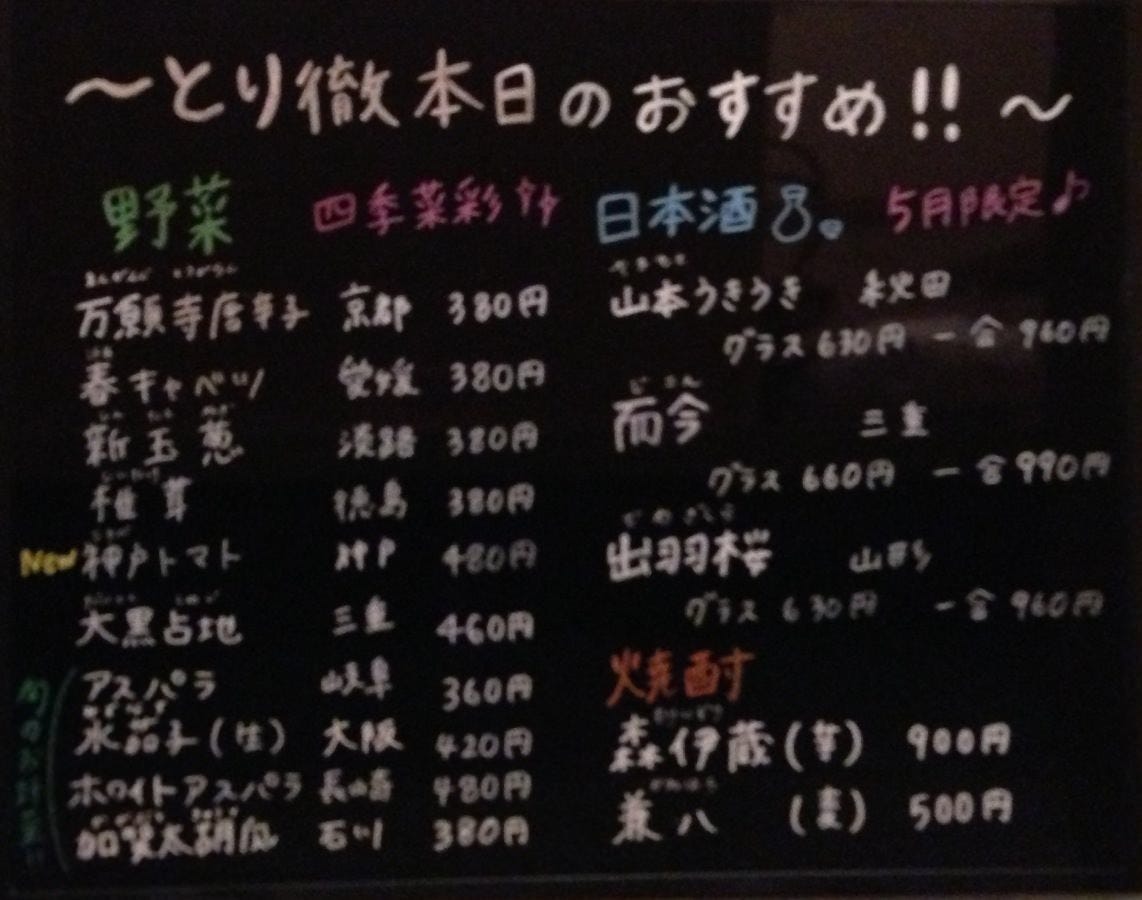 ～とり徹本日のおすすめ!!～
野菜 四季菜彩
万願寺唐辛子 京都 380円
春キャベツ 愛媛 380円
新玉葱 淡路 380円
椎茸 徳島 380円
New 神戸トマト 神戸 480円
大黒占地 三重 460円
アスパラ 岐阜 360円
水茄子(生) 大阪 420円
ホワイトアスパラ 長崎 480円
加賀太胡瓜 石川 380円
旬のお野菜!!
日本酒 5月限定♪
やまもと
山本うきうき 秋田
グラス 630円 一合 960円
じこん
而今 三重
グラス 660円 一合 990円
でわざくら
出羽桜 山形
グラス 630円 一合 960円
焼酎
森伊蔵(芋) 900円
兼八 (麦) 500円